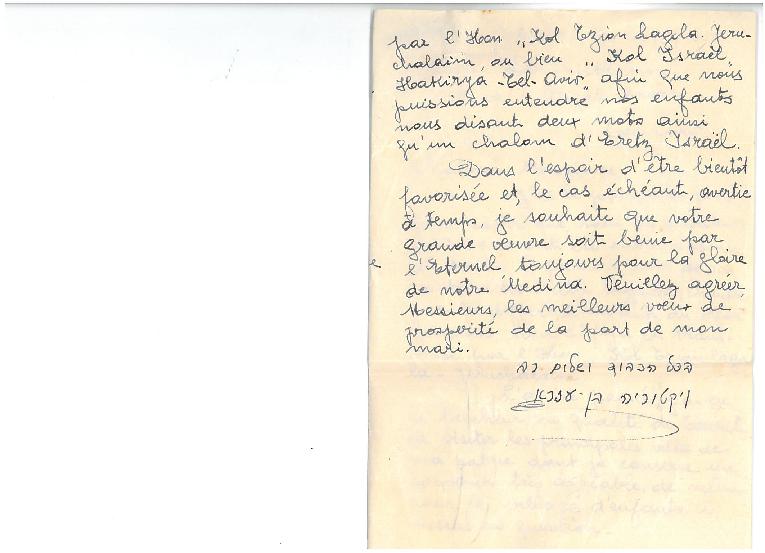 par l'Hon „Kol Tzion Lagola. Jeru-
chalaïm, ou bien „Kol Israël,
Hakirya -Tel-Aviv„ afin que nous
puissions entendre nos enfants
nous disant deux mots ainsi
qu'un chalom d'Eretz Israël.
Dans l'espoir d'être bientôt
favorisée et, le cas échéant, avertie
à temps, je souhaite que votre
grande œuvre soit bénie par
l'Eternel toujours pour la gloire
de notre Medina. Veuillez agréer,
Messieurs, les meilleurs vœux de
prospérité de la part de mon
mari.
בכל הכבוד ושלום רב
ויקטוריה בן-עזרא